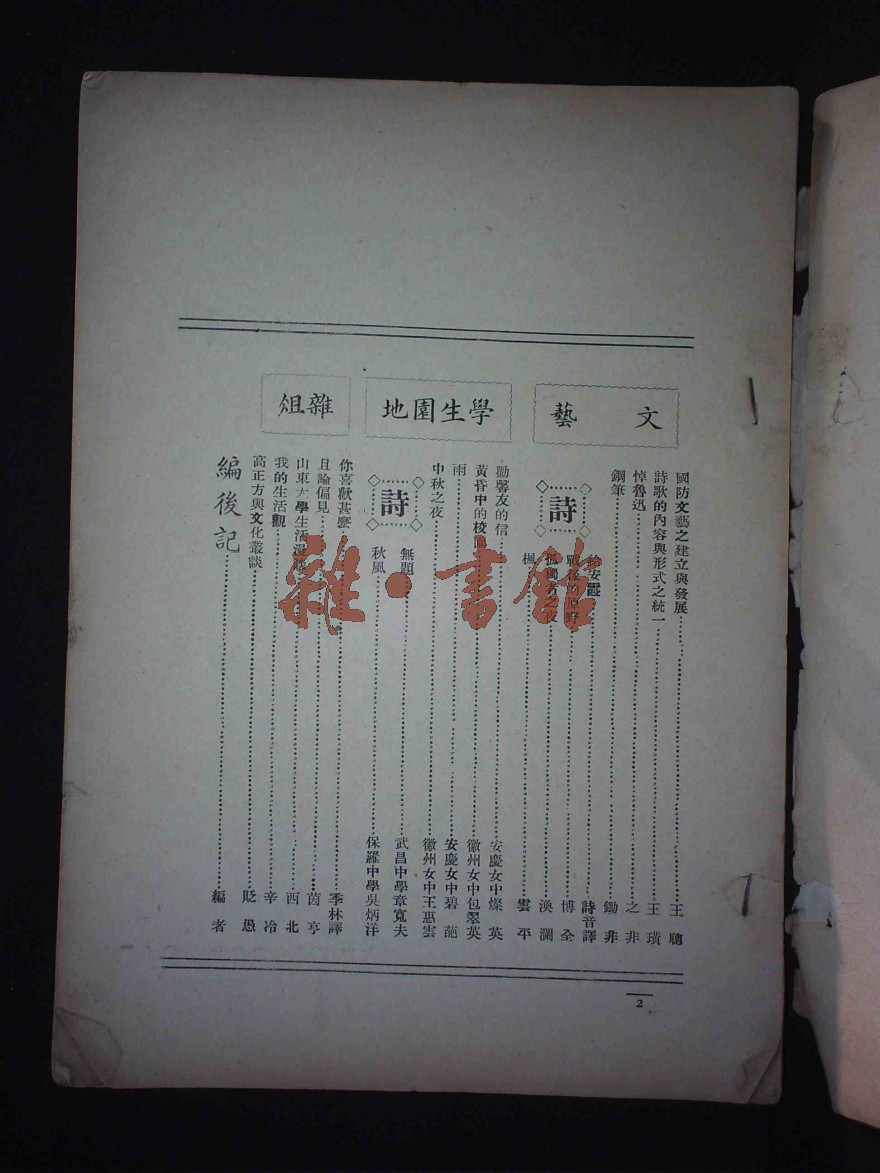 文藝
國防文藝之建立與發展 王璁
詩歌的內容與形式之統一 王璜
悼魯迅 之非
鋼筆 鋤非
詩
給安 詩音譯
戰後的原野 博全
孤獨者之夜 渙瀾
楓 雲平
學生園地
勸馨友的信 安慶女中燦英
黃昏中的校園 徽州女中包翠英
雨 安慶女中碧葩
中秋之夜 徽州女中王惠雲
詩
無題 武昌中學章寬夫
秋風 保羅中學吳炳洋
雜俎
你喜歡甚麼 季林譯
且論偏見 茵亨
山東大學生活漫談 西北
我的生活觀 辛冷
高正方與文化叢談 貶愚
編後記 編者
2
雜·書館